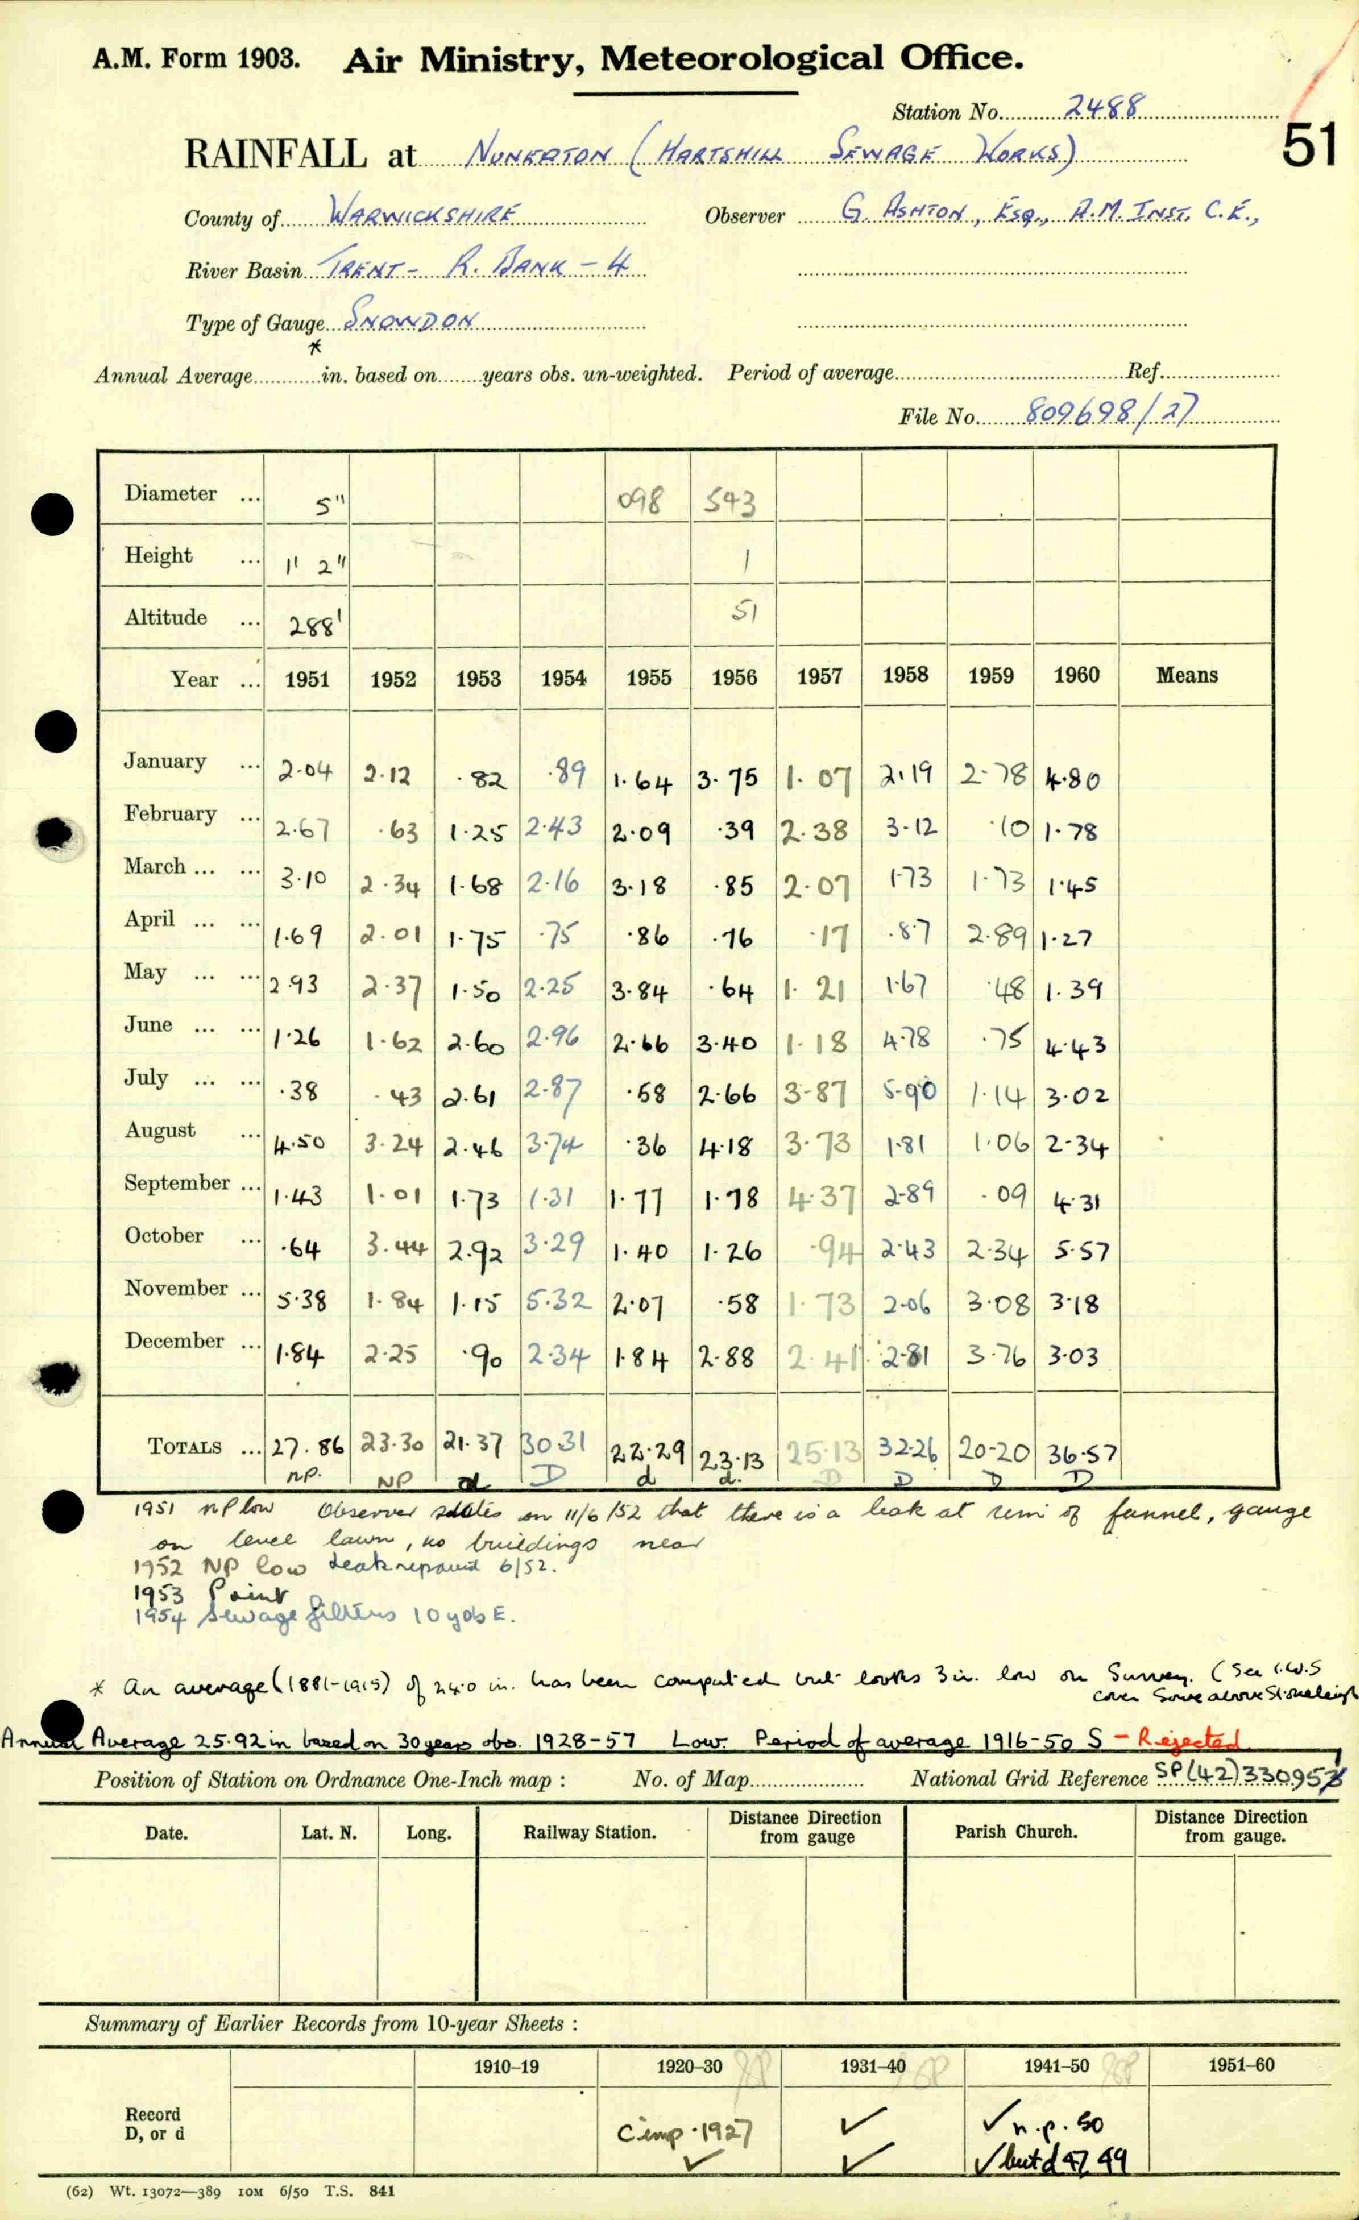 A.M. Form 1903. Air Ministry, Meteorological Office.
Station No. 2488
51
RAINFALL at NUNEATON (HARTSHILL SEWAGE WORKS)
County of WARWICKSHIRE Observer G. ASHTON, ESQ., A.M. INST. C.E.,
River Basin TRENT - R. BANK - 4
Type of Gauge SNOWDON
*
Annual Average............in. based on.......years obs. un-weighted. Period of average............ Ref............
File No. 809698/27
Diameter ... 5" 098 543
Height ... 1' 2" 1
Altitude ... 288' 51
Year ... 1951 1952 1953 1954 1955 1956 1957 1958 1959 1960 Means
January ... 2.04 2.12 .82 .89 1.64 3.75 1.07 2.19 2.78 4.80
February ... 2.67 .63 1.25 2.43 2.09 .39 2.38 3.12 .10 1.78
March ... ... 3.10 2.34 1.68 2.16 3.18 .85 2.07 1.73 1.73 1.45
April ... ... 1.69 2.01 1.75 .75 .86 .76 .17 .87 2.89 1.27
May ... ... 2.93 2.37 1.50 2.25 3.84 .64 1.21 1.67 .48 1.39
June ... ... 1.26 1.62 2.60 2.96 2.66 3.40 1.18 4.78 .75 4.43
July ... ... .38 .43 2.61 2.87 .58 2.66 3.87 5.90 1.14 3.02
August ... 4.50 3.24 2.46 3.74 .36 4.18 3.73 1.81 1.06 2.34
September ... 1.43 1.01 1.73 1.31 1.77 1.78 4.37 2.89 .09 4.31
October ... .64 3.44 2.92 3.29 1.40 1.26 .94 2.43 2.34 5.57
November ... 5.38 1.84 1.15 5.32 2.07 .58 1.73 2.06 3.08 3.18
December ... 1.84 2.25 .90 2.34 1.84 2.88 2.41 2.81 3.76 3.03
TOTALS ... 27.86 23.30 21.37 30.31 22.29 23.13 25.13 32.26 20.20 36.57
NP. NP d D d d. D D D D
1951 NP low Observer states on 11/6/52 that there is a leak at rim of funnel, gauge
on level lawn, no buildings near
1952 NP low Leak repaired 6/52.
1953 Point
1954 Sewage filters 10 yds E.
* An average (1881-1915) of 24.0 in. has been computed but looks 3 in. low on Survey. (See I.W.S
cover Sowe above Stoneleigh
Annual Average 25.92 in based on 30 years obs. 1928-57 Low. Period of average 1916-50 S - Rejected
Position of Station on Ordnance One-Inch map : No. of Map............ National Grid Reference SP(42)330957
Date. Lat. N. Long. Railway Station. Distance Direction from gauge Parish Church. Distance Direction from gauge.
Summary of Earlier Records from 10-year Sheets :
1910–19 1920–30 1931–40 1941–50 1951–60
Record D, or d
Cimp. 1927 ✓ ✓ n.p. 50
✓ ✓ ✓ but d 47, 49
(62) Wt. 13072—389 10M 6/50 T.S. 841